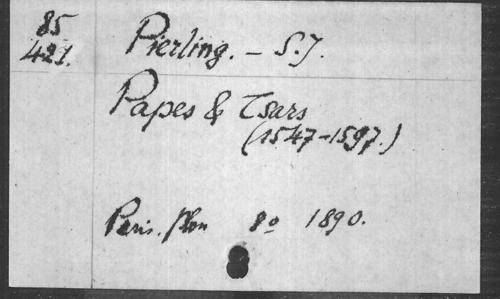 85
421.
Pierling. – S.J.
Papes & Tsars
(1547-1597.)
Paris. Plon 8º 1890.